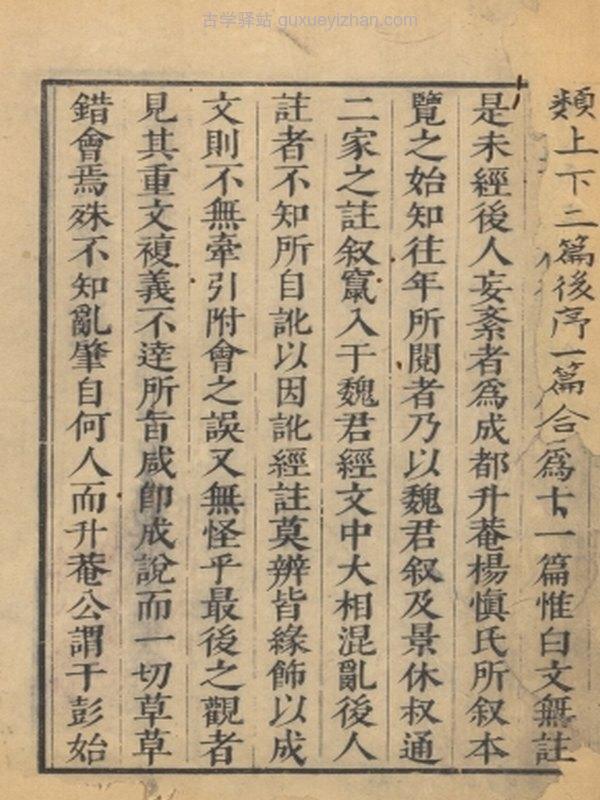 古学驿站 guxueyizhan.com
類上下二篇後序一篇合爲十一篇惟白文無註
是未經後人妄紊者爲成都升菴楊慎氏所叙本
覽之始知往年所閱者乃以魏君叙及景休叔通
二家之註叙竄入于魏君經文中大相混亂後人
註者不知所自訛以因訛經註莫辨皆緣飾以成
文則不無牽引附會之誤又無怪乎最後之觀者
見其重文複義不達所旨咸卽成說而一切草草
錯會焉殊不知亂肇自何人而升菴公謂干彭始